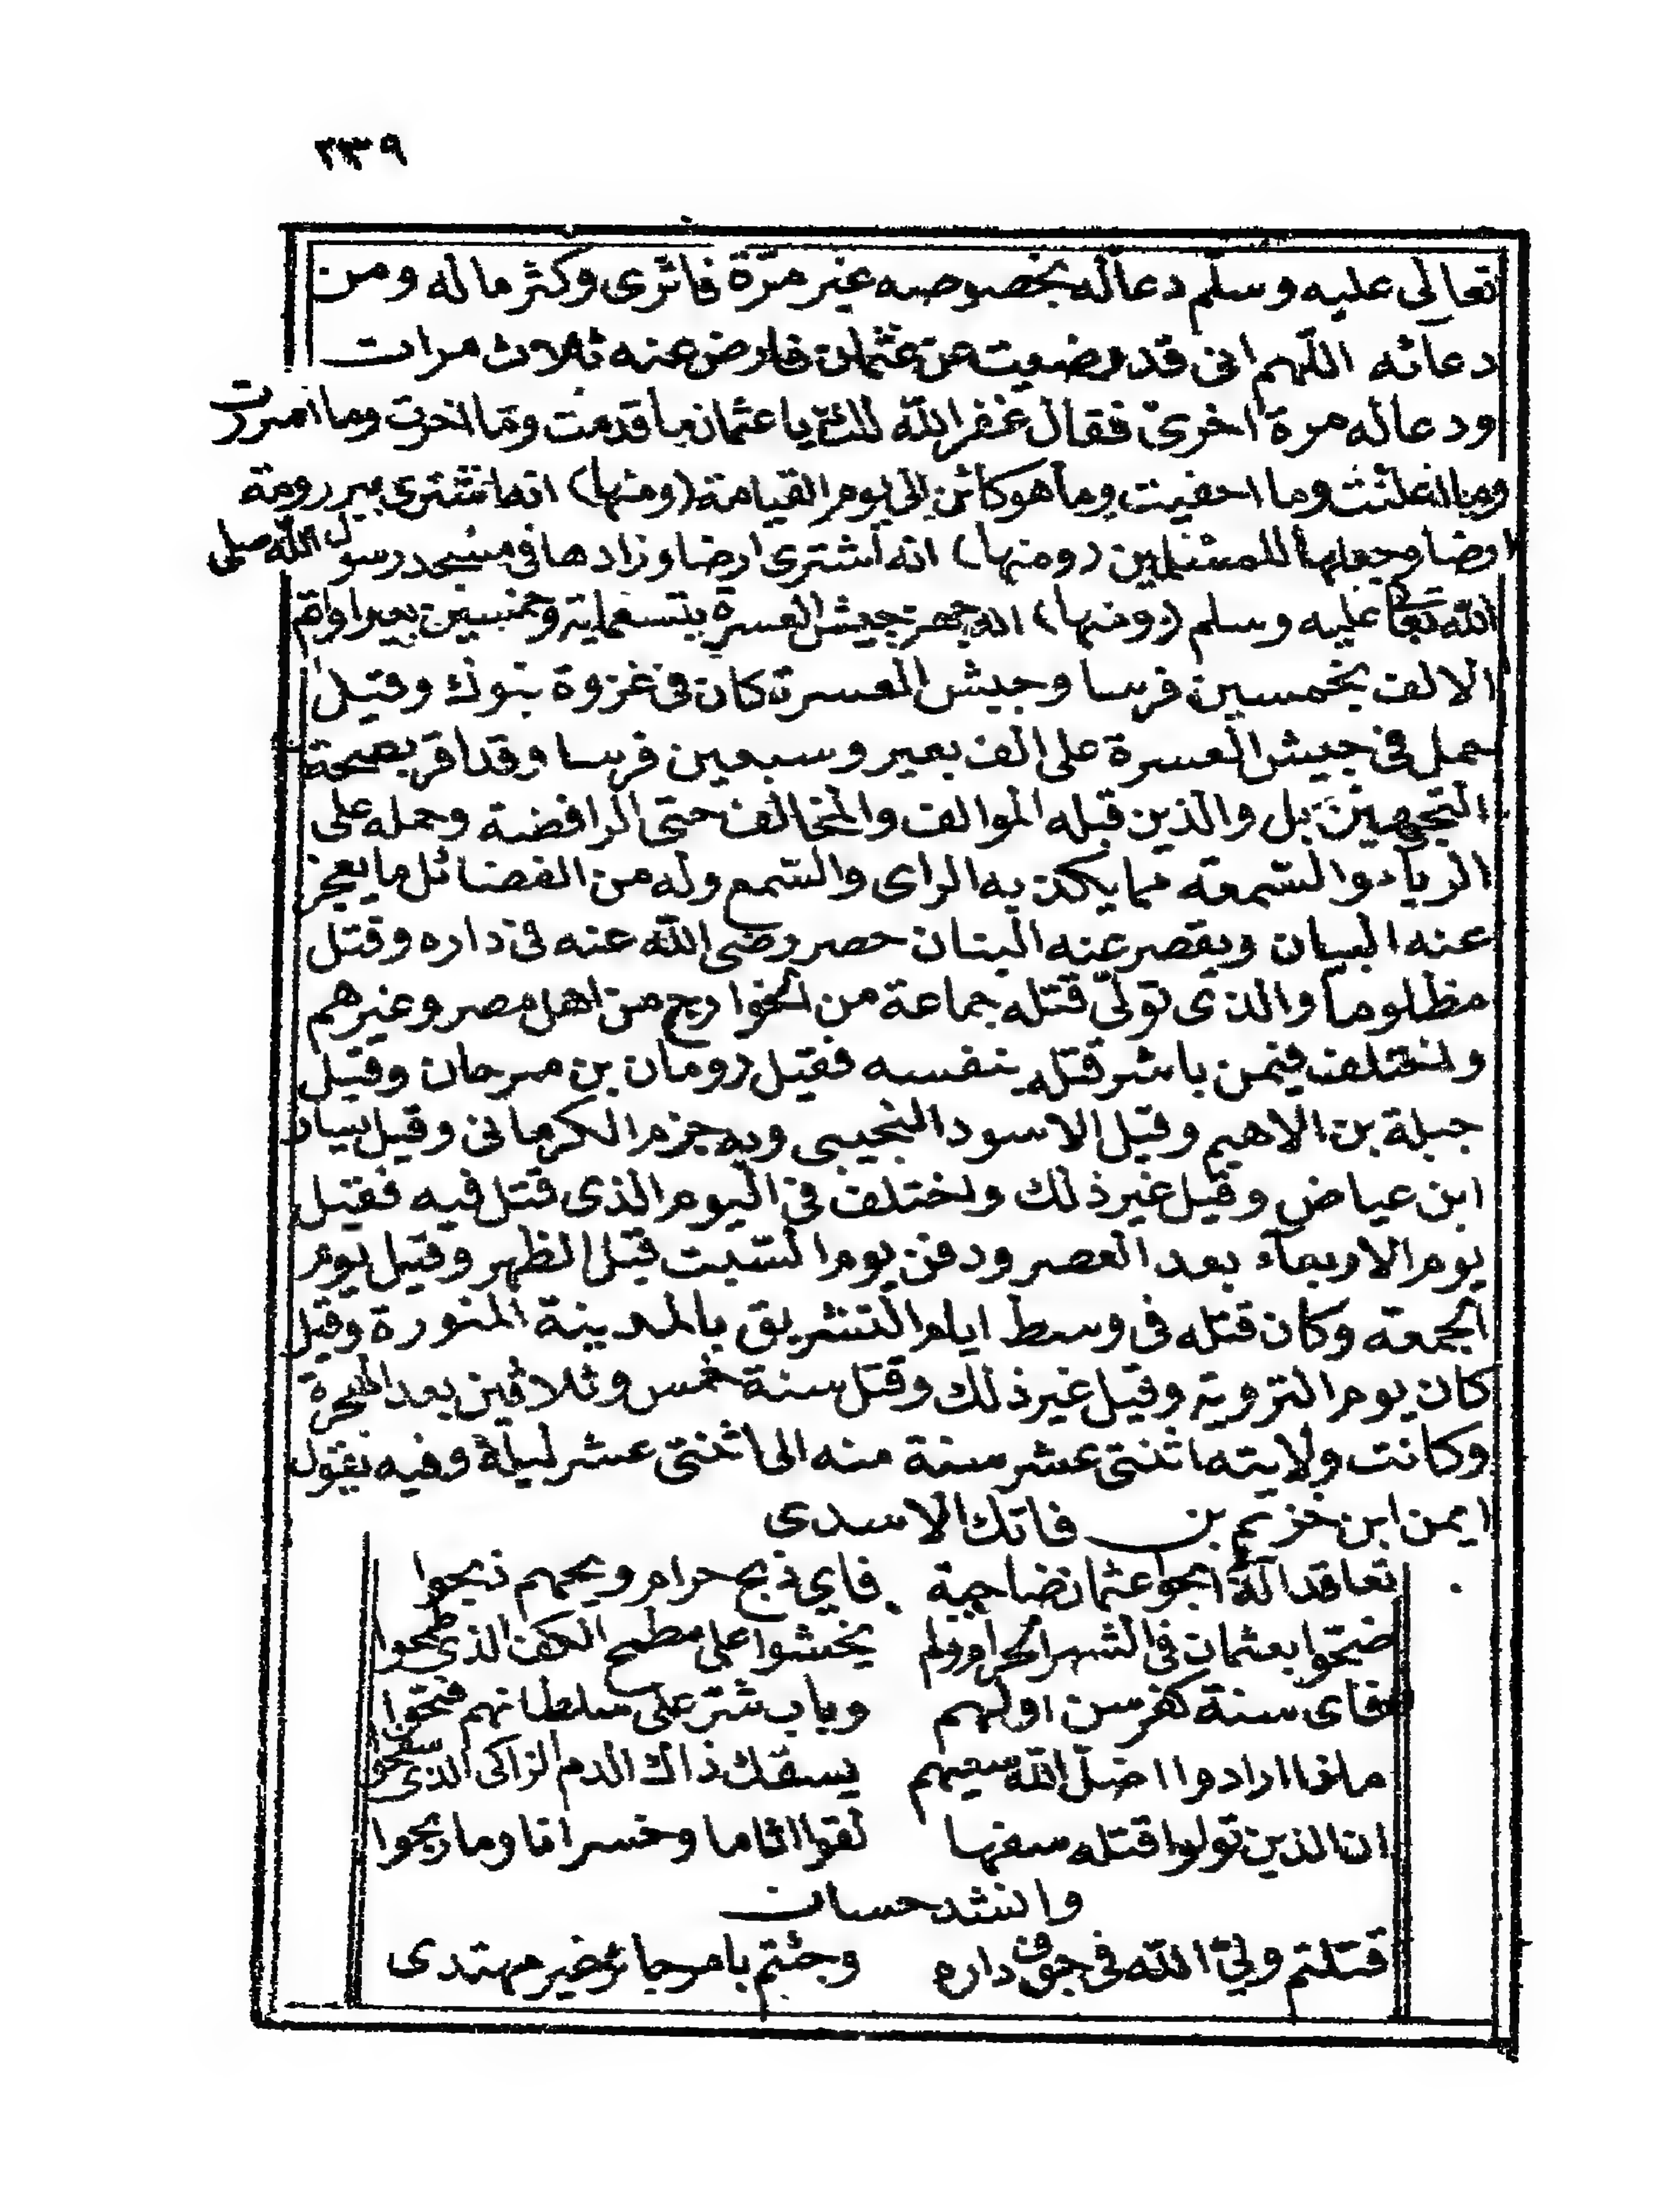 ٢٣٩
تعالى عليه وسلّم دعاله بخصوصه غير مرّة فاثرى وكثر ماله ومن
دعائه اللّهم انى قد رضيت عن عثمان فارض عنه ثلاث مرات
ودعاله مرة اخرى فقال غفر الله لك يا عثمان ما قدمت وما اخرت وما اسررت
وما اعلنت وما اخفيت وما هو كائن الى يوم القيامة (ومنها) انه اشترى بير رومة
ارضا وجعلها للمسلمين (ومنها) انه اشترى ارضا وزادها فى مسجد رسول الله صلى
الله تعا عليه وسلم (ومنها) انه جهز جيش العسرة بتسعماية وخمسين بعيرا واتم
الالف بخمسين فرسا وجيش العسرة كان فى غزوة تبوك وقيل
حمل فى جيش العسرة على الف بعير وسبعين فرسا وقد اقر بصحة
التجهيز بل والذين قبله الموالف والمخالف حتى الرافضة وحمله على
الرياء والسّمعة مما يكذبه الراى والسّمع وله من الفضائل ما يعجز
عنه البيان ويقصر عنه البنان حصر رضى الله عنه فى داره وقتل
مظلوما والذى تولّى قتله جماعة من الخوارج من اهل مصر وغيرهم
واختلف فيمن باشر قتله بنفسه فقيل رومان بن سرحان وقيل
جبلة بن الاهيم وقيل الاسود التجيبى وبه جزم الكرمانى وقيل يسار
ابن عياض وقيل غير ذلك واختلف فى اليوم الذى قتل فيه فقيل
يوم الاربعاء بعد العصر ودفن يوم السّبت قبل الظهر وقيل يوم
الجمعة وكان قتله فى وسط ايام التشريق بالمدينة المنورة وقيل
كان يوم التروية وقيل غير ذلك وقتل سنة خمس وثلاثين بعد الهجرة
وكانت ولايته اثنتى عشر سنة منه الى اثنتى عشر ليلة وفيه يقول
ايمن ابن خزيم بن فاتك الاسدى
تعاقد الة عثمان ضاحية فاي ذبح حرام ويحهم ذبحوا
ضحّوا بعثمان فى الشهر الحرام ولم يخشوا على مطمح الكف الذى طمحوا
فاى سنة كفر سن اولهم وباب شرّ على سلطانهم فتحوا
ماذا ارادوا اضلّ الله سعيهم بسفك ذاك الدم الزاكى الذى سفحوا
ان الذين تولوا قتله سفها لقوا اثاما وخسرانا وما ربحوا
وانشد حسان
قتلتم وليّ الله فى جوف داره وجئتم بامر جائر غير مهتدى